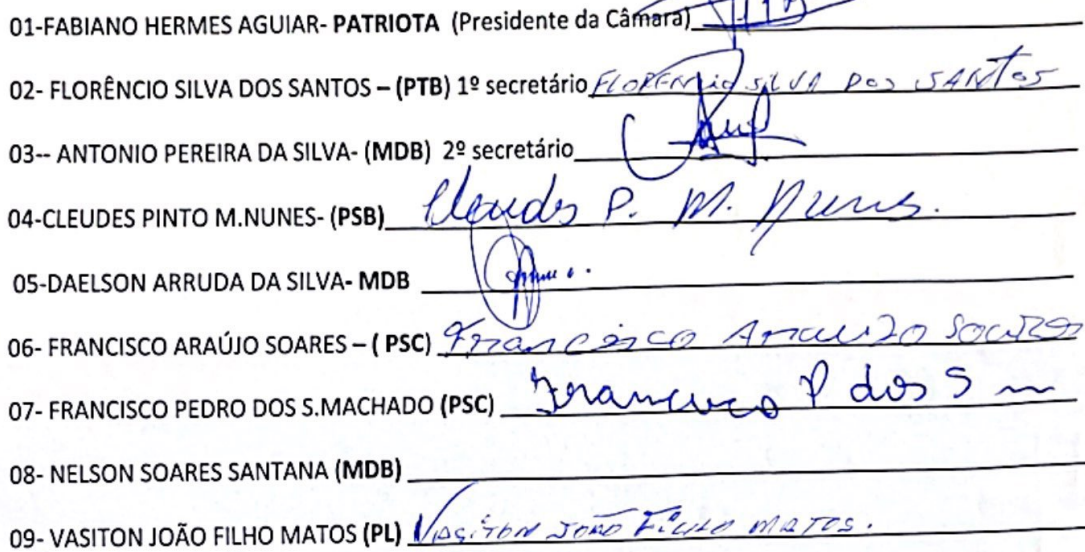 01-FABIANO HERMES AGUIAR- PATRIOTA (Presidente da Câmara)
02- FLORÊNCIO SILVA DOS SANTOS – (PTB) 1º secretário FLORENCIO SILVA DOS SANTOS
03-- ANTONIO PEREIRA DA SILVA- (MDB) 2º secretário
04-CLEUDES PINTO M.NUNES- (PSB) Cleudes P. M. Nunes.
05-DAELSON ARRUDA DA SILVA- MDB
06- FRANCISCO ARAÚJO SOARES – ( PSC) Francisco Araujo Soares
07- FRANCISCO PEDRO DOS S.MACHADO (PSC) Francisco P dos S m
08- NELSON SOARES SANTANA (MDB)
09- VASITON JOÃO FILHO MATOS (PL) VASITON JOÃO FILHO MATOS.